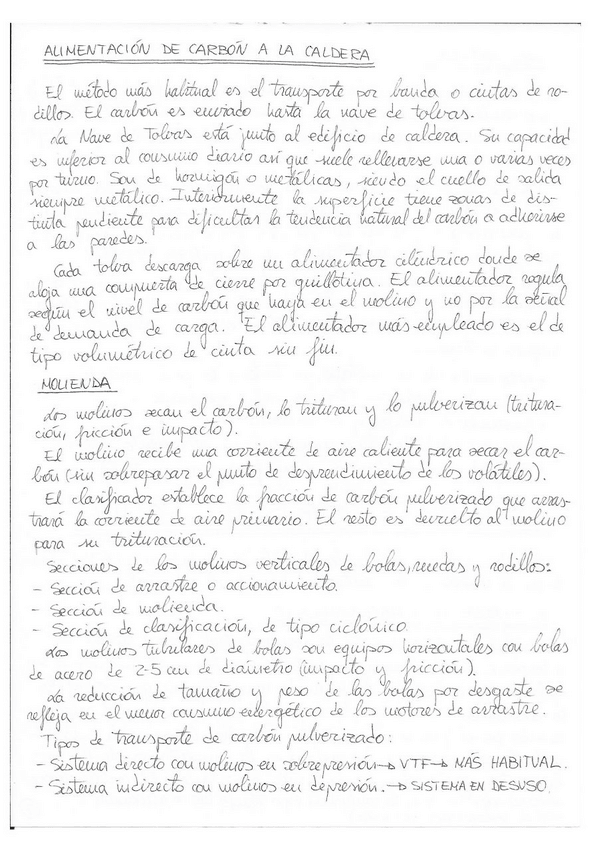 ALIMENTACIÓN DE CARBÓN A LA CALDERA
El método más habitual es el transporte por banda o cintas de ro-
dillos. El carbón es enviado hasta la nave de tolvas.
La Nave de Tolvas está junto al edificio de caldera. Su capacidad
es inferior al consumo diario así que suele rellenarse una o varias veces
por turno. Son de hormigón o metálicas, siendo el cuello de salida
siempre metálico. Interiormente la superficie tiene zonas de dis-
tinta pendiente para dificultar la tendencia natural del carbón a adherirse
a las paredes.
Cada tolva descarga sobre un alimentador cilíndrico donde se
aloja una compuerta de cierre por guillotina. El alimentador regula
según el nivel de carbón que haya en el molino y no por la señal
de demanda de carga. El alimentador más empleado es el de
tipo volumétrico de cinta sin fin.
MOLIENDA
Los molinos secan el carbón, lo trituran y lo pulverizan (tritura-
ción, fricción e impacto).
El molino recibe una corriente de aire caliente para secar el car-
bón (sin sobrepasar el punto de desprendimiento de los volátiles).
El clasificador establece la fracción de carbón pulverizado que arras-
trará la corriente de aire primario. El resto es devuelto al molino
para su trituración.
Secciones de los molinos verticales de bolas, ruedas y rodillos:
- Sección de arrastre o accionamiento.
- Sección de molienda.
- Sección de clasificación, de tipo ciclónico.
Los molinos tubulares de bolas son equipos horizontales con bolas
de acero de 2-5 cm de diámetro (impacto y fricción).
La reducción de tamaño y peso de las bolas por desgaste se
refleja en el menor consumo energético de los motores de arrastre.
Tipos de transporte de carbón pulverizado:
- Sistema directo con molinos en sobrepresión → VTF → MÁS HABITUAL.
- Sistema indirecto con molinos en depresión. → SISTEMA EN DESUSO.